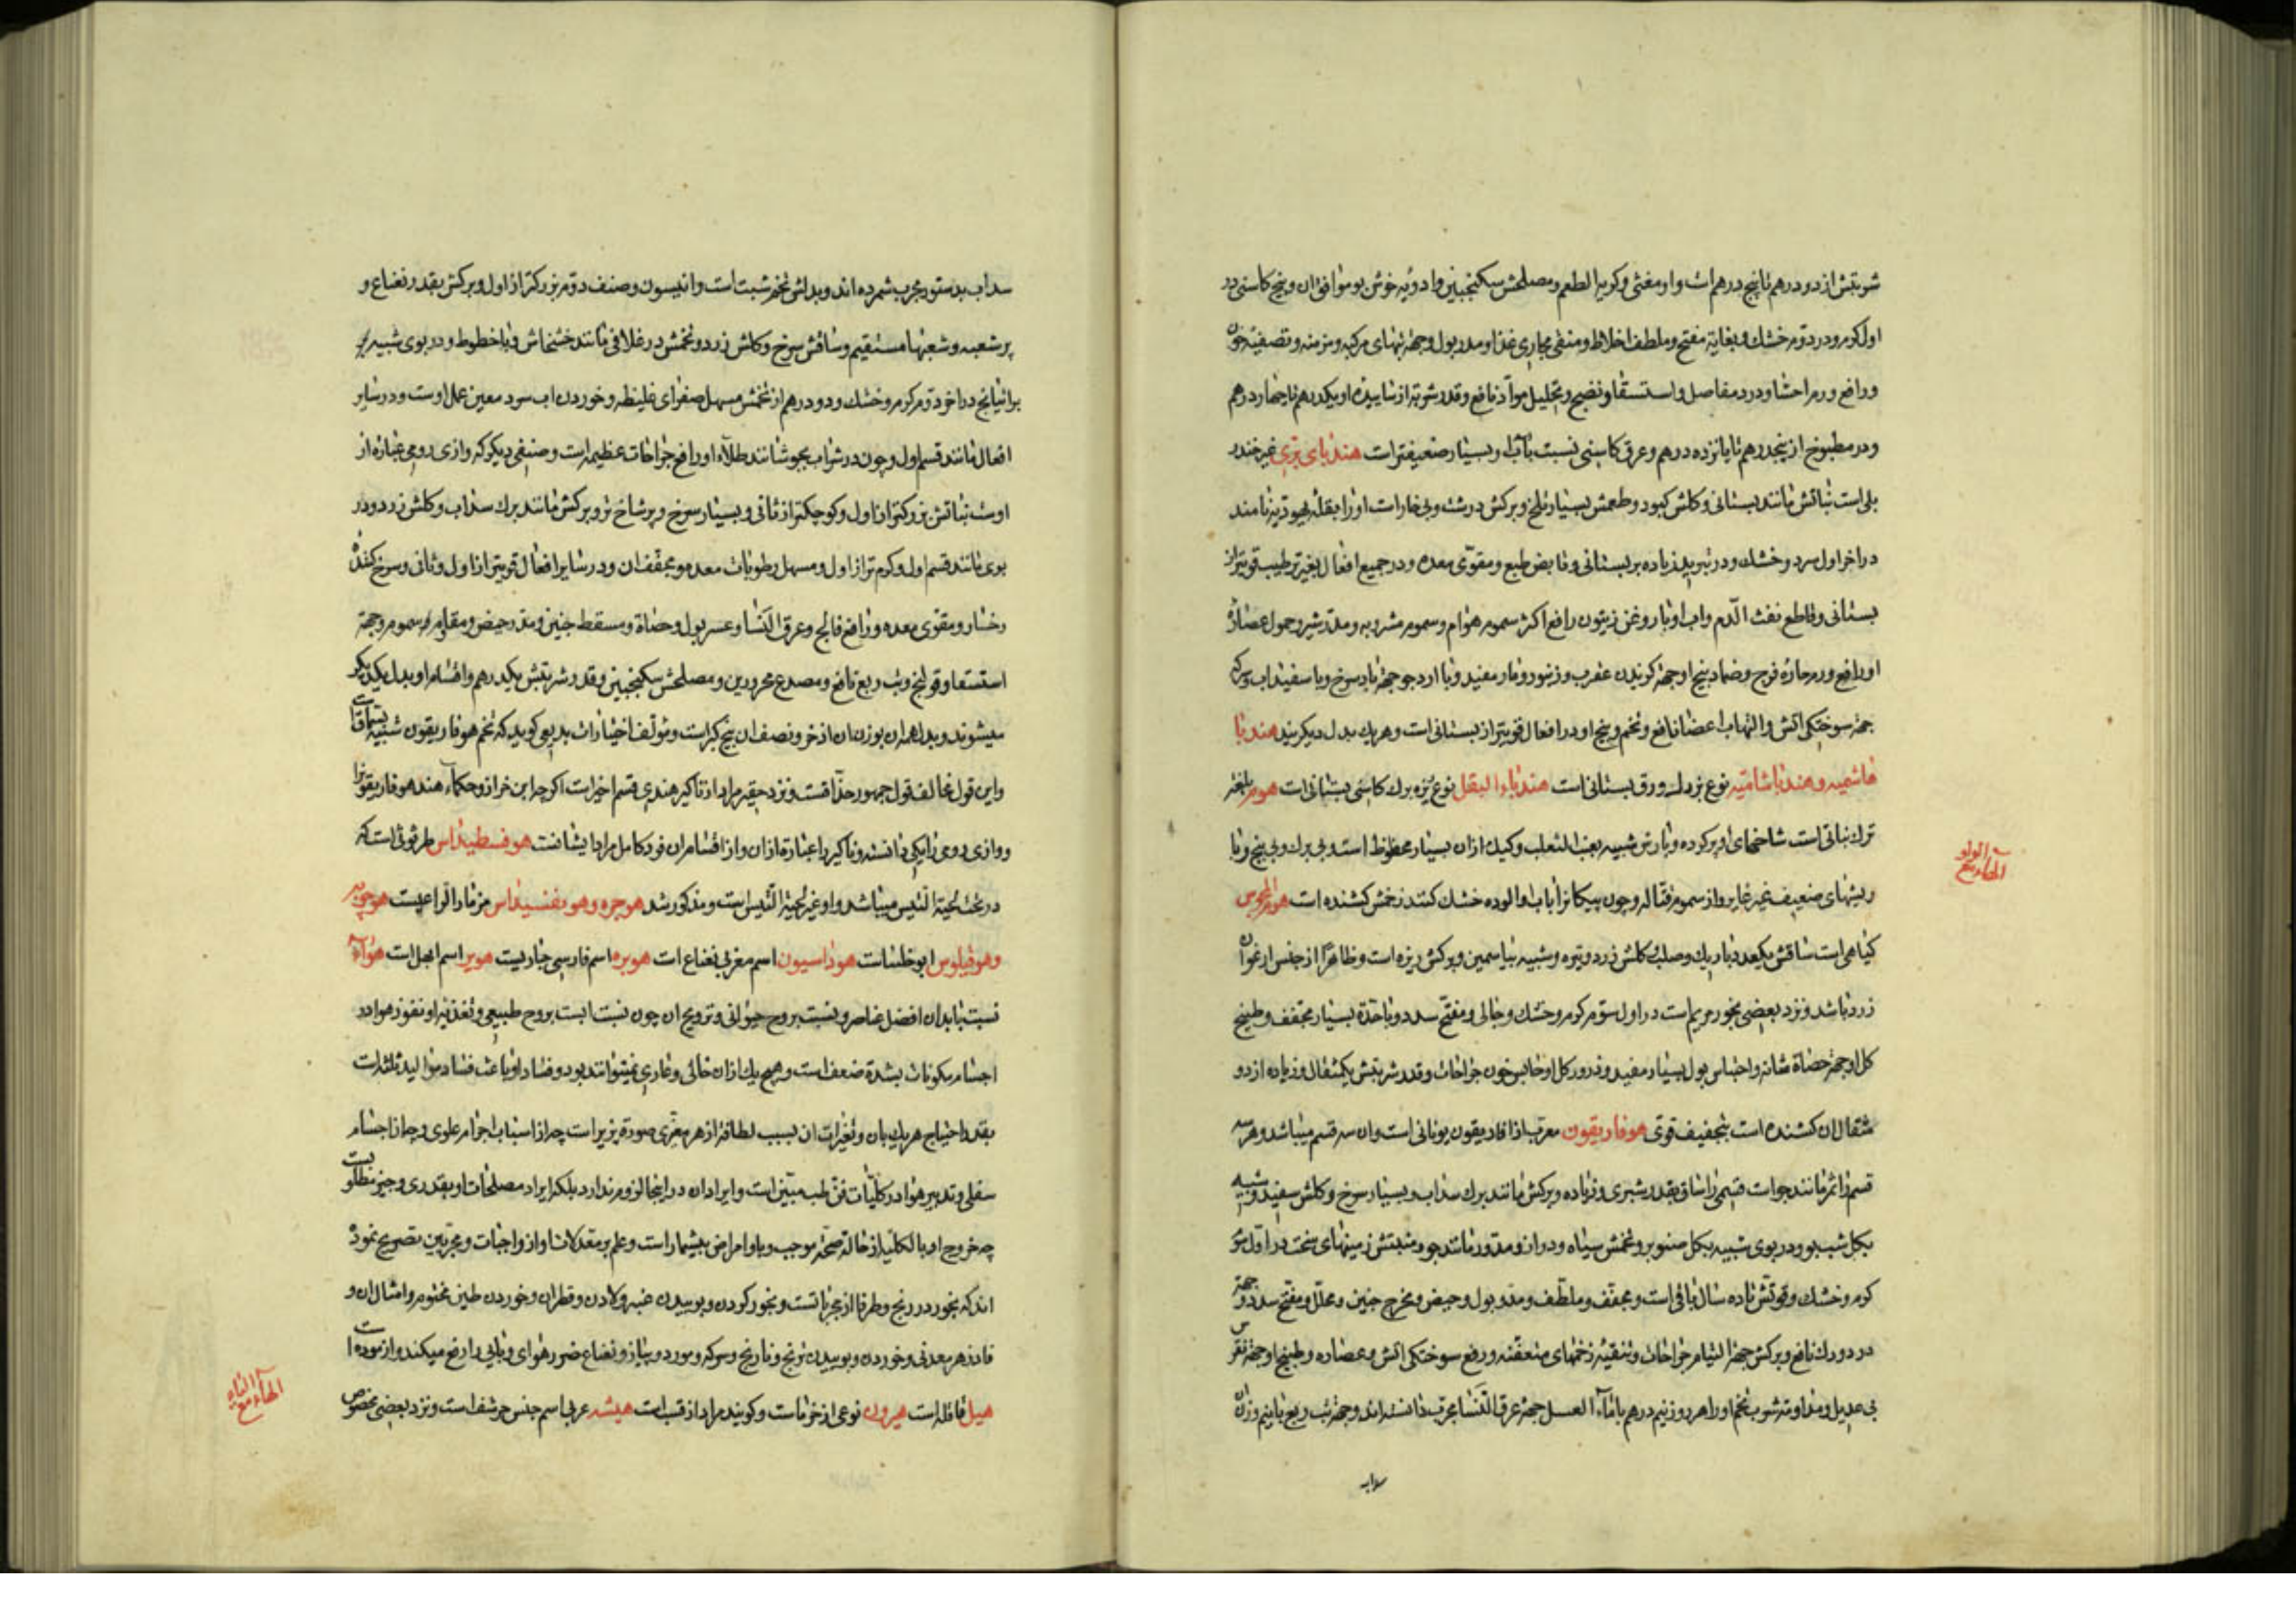 شربتش از دو درهم تا پنج درهم است و او مغثی و کریه الطعم و مصلحش سکنجبین و ادویه خوش بو موافق ان و بیخ کاسنی در
اول کرم و در دوم خشک و بغایة مفتح و ملطف اخلاط و منقی مجاری غذا و مدر بول و جهة تبهای مرکبه و مزمنه و تصفیه خون
و رافع ورم احشا و درد مفاصل و استسقا و نضج و تحلیل مواد نافع و قدر شربة از ساییده او یکدرهم تا چهار درهم
و در مطبوخ از پنجدرهم تا پانزده درهم و عرق کاسنی نسبت باب او بسیار ضعیفتر است هندبای بری غیر خندر
یلی است نباتش مانند بستانی و کلش کبود و طعمش بسیار تلخ و برکش درشت و بی خار است او را بقله یهودیه نامند
در اخر اول سرد و خشک و در تبرید زیاده بر بستانی و قابض طبع و مقوی معده و در جمیع افعال بغیر ترطیب قویتر از
بستانی و قاطع نفث الدم و اب او با روغن زیتون رافع اکثر سموم هوام و سموم مشروبه و مدر شیر و حمول عصاره
او رافع ورم حاره فرج و ضماد بیخ او جهة کزیدن عقرب و زنبور و مار مفید و با ارد جو جهة باد سرخ و با سفیداب و سرکه
جهة سوختکی اتش و التهاب اعضا نافع و تخم و بیخ او در افعال قویتر از بستانی است و هریک بدل دیکریند هندبا
هاشمیه و هندبا شامیه نوع بزرک ورق بستانی است هندباء البقل نوع ریزه برک کاسنی بستانی است هوم بلغة
ترک نباتی است شاخهای او پر کره و بارش شبیه بعنب الثعلب و کبک ازان بسیار محظوظ است و بی برک و بی بیخ و با
ریشهای ضعیف غیر غایر و از سموم قتاله و چون پیکانرا باب او الوده خشک کنند زخمش کشنده است هوم المجوس
کیاهی است ساقش یکعدد باریک و صلب و کلش زرد و تیره و شبیه بیاسمین و برکش ریزه است و ظاهرا از جنس ارغوان
زرد باشد و نزد بعضی بخور مریم است در اول سوم کرم و خشک و جالی و مفتح سدد و باحدة بسیار مجفف و طبیخ
کل او جهة حصاة مثانه و احتباس بول بسیار مفید و ذرور کل او حابس خون جراحات و قدر شربتش یکمثقال و زیاده از دو
مثقال ان کشنده است بتجفیف قوی هوفاریقون معرب از افاریقون یونانی است و ان سه قسم میباشد و هر سه
قسم را ثمر مانند جو است قسمی را ساق بقدر شبری و زیاده و برکش مانند برک سداب و بسیار سرخ و کلش سفید و شبیه
بکل شب بو و در بوی شبیه بکل صنوبر و تخمش سیاه و دراز و مدور مانند جو و منبتش زمینهای سخت در اول سوم
کرم و خشک و قوتش تا ده سال باقی است و مجفف و ملطف و مدر بول و حیض و مخرج جنین و محلل و مفتح سدد و جهة
درد ورک نافع و برکش جهة التیام جراحات و تنقیه زخمهای متعفنه و رفع سوختکی اتش و عصاره و طبیخ او جهة نقرس
بی عدیل و مداومة شرب تخم او را هر روز نیم درهم با ماء العسل جهة عرق النسا مجرب دانسته اند و جهة تب ربع با نیم وزن ان
سداب
الهاء مع الواو
سداب بدستور مجرب شمرده اند و بدلش تخم شبت است و انیسون و صنف دوم بزرکتر از اول و برکش بقدر نعناع و
پر شعبه و شعبها مستقیم و ساقش سرخ و کلش زرد و تخمش در غلافی مانند خشخاش و با خطوط و در بوی شبیه
براتیانج در اخر دوم کرم و خشک و دو درهم از تخمش مسهل صفرای غلیظه و خوردن اب سرد معین عمل اوست و در سایر
افعال مانند قسم اول و چون در شراب بجوشانند طلاء او رافع جراحات عظیمه است و صنفی دیکر که دازی رومی عباره از
اوست نباتش بزرکتر از اول و کوچکتر از ثانی و بسیار سرخ و پر شاخ تر و برکش مانند برک سداب و کلش زرد و در
بوی مانند قسم اول و کرم تر از اول و مسهل رطوبات معده و مجفف ان و در سایر افعال قویتر از اول و ثانی و سرخ کننده
رخسار و مقوی معده و رافع فالج و عرق النسا و عسر بول و حصاة و مسقط جنین و مدر حیض و مقاوم سموم و جهة
استسقا و قولنج و تب ربع نافع و مصدع محرورین و مصلحش سکنجبین و قدر شربتش یکدرهم و اقسام او بدل یکدیکر
میشوند و بدل همه ان بوزن ان اذخر و نصف ان بیخ کبر است و مؤلف اختیارات بدیعی کوید که تخم هوفاریقون شبیه بسماق است
و این قول مخالف قول جمهور حذاقست و نزد حقیر مراد از تاکیر هندی قسم اخیر است اکرچه ابن خراز و حکماء هند هوفاریقونرا
و دازی رومی را یکی دانسته و تاکیر را عبارة ازان و از اقسام ان فرد کامل مراد ایشانست هوفسطیداس طرثوثی است که
در تحت لحیة التیس میباشد و او غیر لحیة التیس است و مذکور شد هوجره و هوبفسیداس مزمار الراعیست هوجویه
و هوفیلوس ابوخلسا است هوداسیون اسم مغربی نعناع است هوبره اسم فارسی حباریست هوبر اسم ابهل است هواء
نسبت بابدان افضل عناصر و نسبت بروح حیوانی و ترویح ان چون نسبت ابست بروح طبیعی و تغذیه او و نفوذ هوا در
اجسام مکونات بشدة ضعف است و هیچ یک ازان خالی و عاری نمیتوانند بود و فساد او باعث فساد موالید ثلثه است
بقدر احتیاج هر یک بان و تغیرات ان بسبب لطافة از هر مغیری صورة پذیر است چه از اسباب اجرام علوی و چه از اجسام
سفلی و تدبیر هوا در کلیات فن طب مبین است و ایراد ان در اینجا لزوم ندارد بلکه ایراد مصلحات او بقدری وجیز مطلوبست
چه خروج او بالکلیه از حالة صحة موجب وبا و امراض بیشمار است و علم بر معدلات او از واجبات و مجربین تصریح نموده
اند که بخور درونج و طرفا از مجرباتست و بخور کردن و بوییدن عنبر و لادن و قطران و خوردن طین مختوم و امثال ان و
فادزهر معدنی و خوردن و بوییدن ترنج و نارنج و سرکه و مورد و پیاز و نعناع ضرر هوای وبایی را رفع میکند و ازموده است
هیل قاقله است هیرون نوعی از خرماست و کویند مراد از قسب است هیشه عربی اسم جنس حرشف است و نزد بعضی مخصوص
الهاء مع الیاء